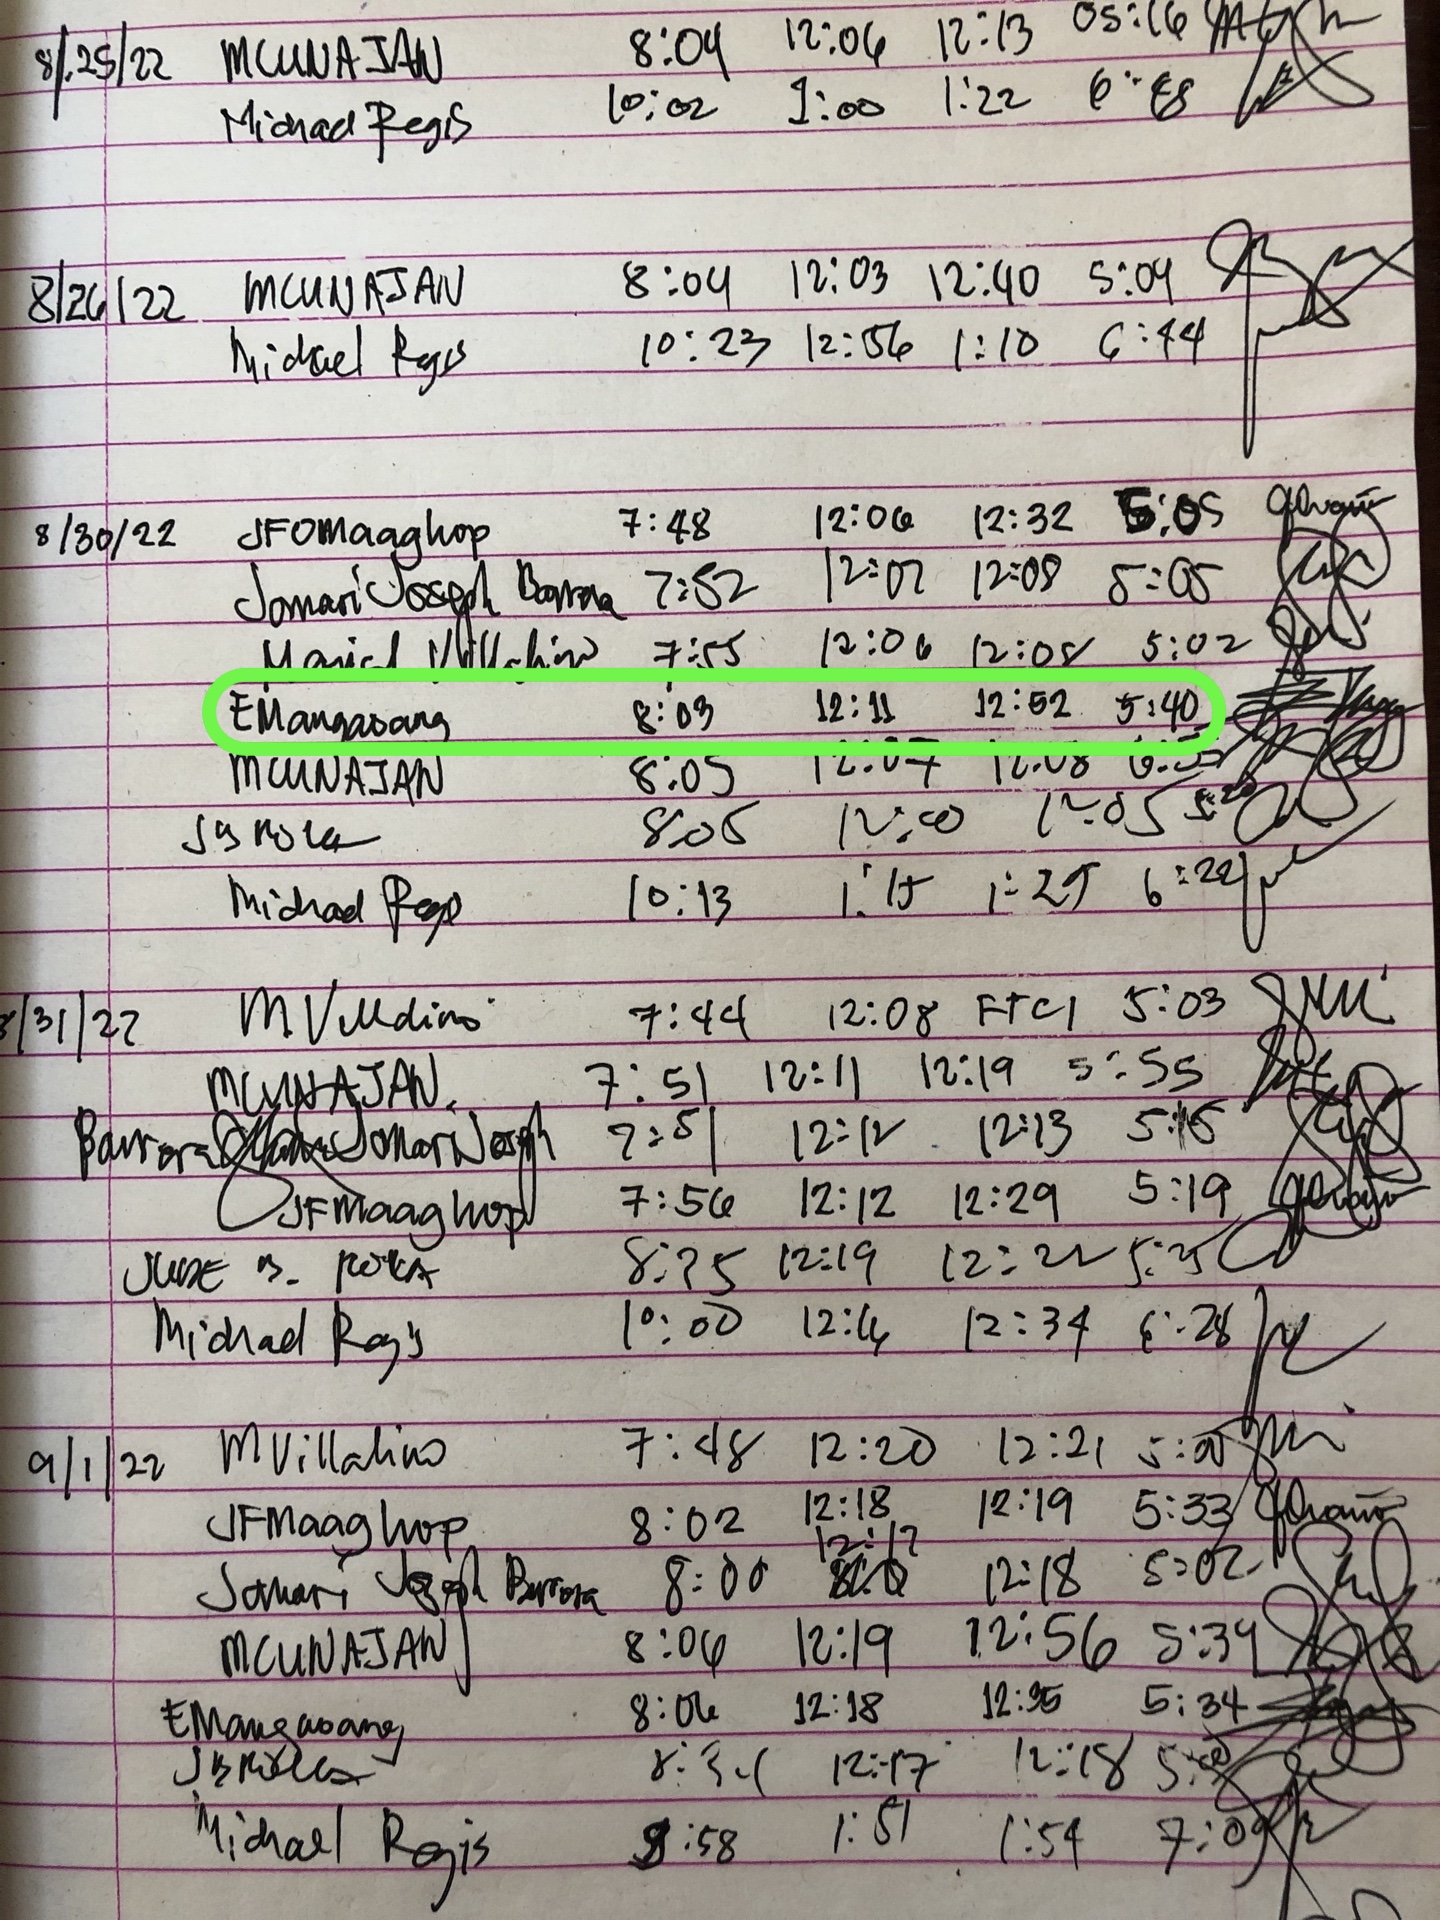 8/25/22 MCUNAJAN 8:04 12:06 12:13 05:16
Michael Regis 10:02 1:00 1:22
8/26/22 MCUNAJAN 8:04 12:03 12:40 5:04
Michael Regis 10:23 12:56 1:10 6:44
8/30/22 JFOMaaghop 7:48 12:06 12:32 5:05
Jomari Joseph Barrora 7:52 12:07 12:09 5:05
7:55 12:06 12:08 5:02
EMangaoang 8:03 12:11 12:52 5:40
MCUNAJAN 8:05 12:07 12:08
8:05 12:00 12:05 5:20
Michael Regis 10:13 1:15 1:25 6:22
8/31/22 7:44 12:08 FTCI 5:03
MCUNAJAN 7:51 12:11 12:19 5:55
Barrora Jomari Joseph 7:51 12:12 12:13
JFMaaghop 7:56 12:12 12:29 5:19
JUDE B. ROKA 12:19 12:22 5:25
Michael Regis 10:00 12:34 6:28
9/1/22 MVillalino 7:48 12:20 12:21
JFMaaghop 8:02 12:18 12:19 5:33
Jomari Joseph Barrora 8:00 12:17 12:18 5:02
MCUNAJAN 8:06 12:19 12:56 5:34
EMangaoang 8:06 12:18 12:35 5:34
12:17 12:18
Michael Regis :58 1:51 1:54 7:09